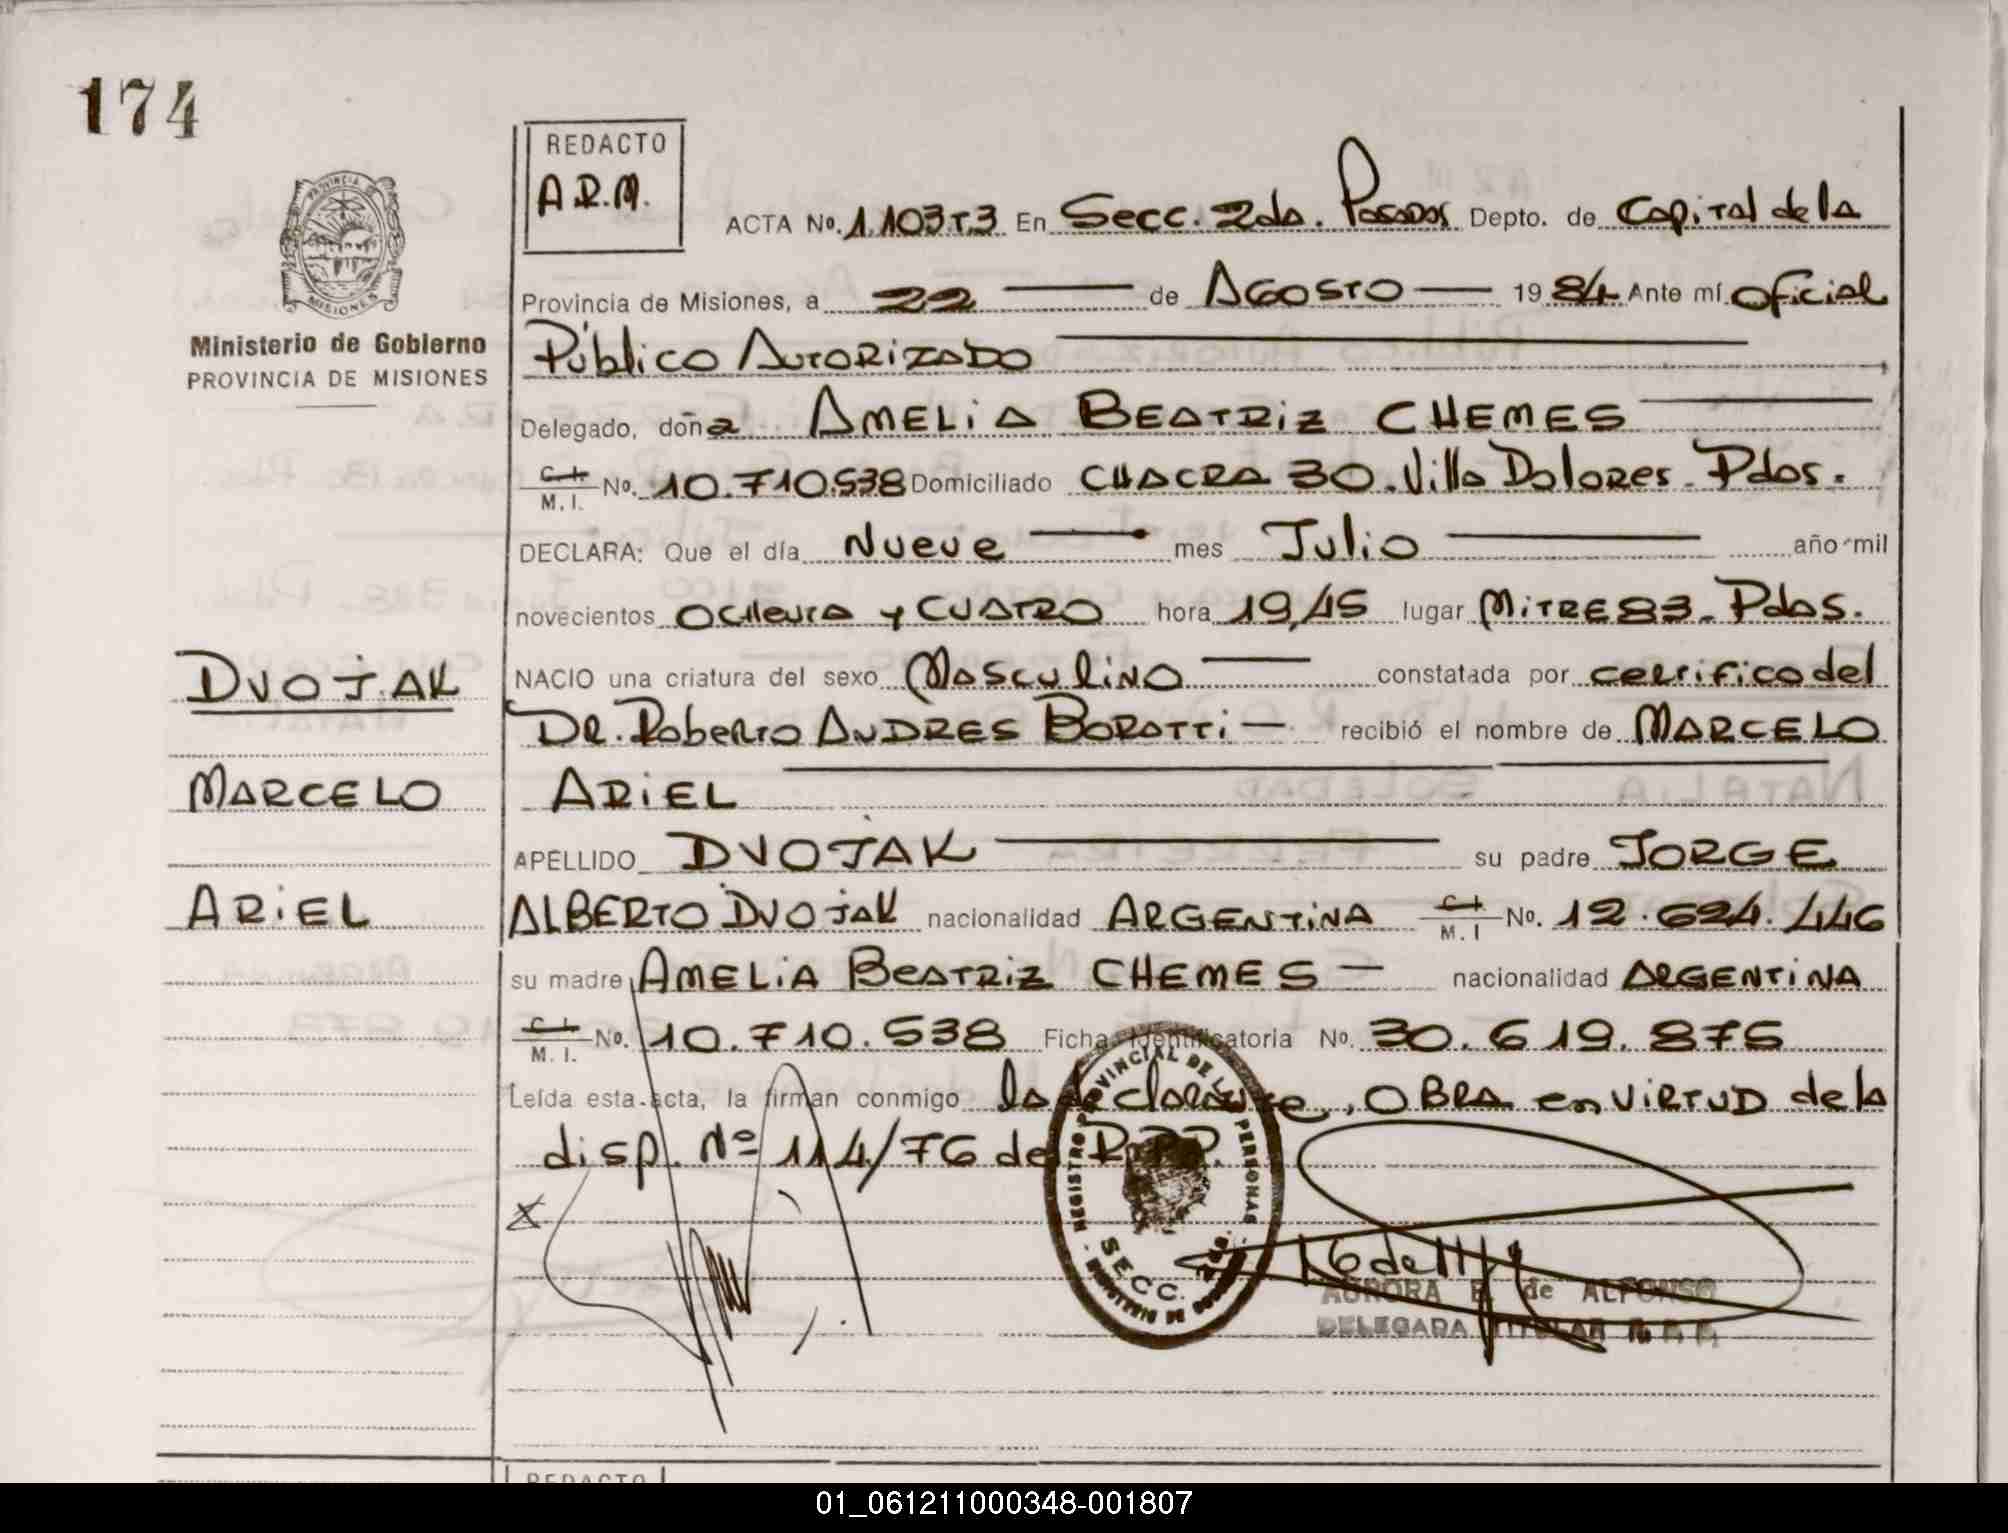 174
REDACTO
A.R.M.
ACTA No. 1.103 T.3 En Secc. 2da. Posadas Depto. de Capital de la
Provincia de Misiones, a 22 de Agosto 1984 Ante mí Oficial
Público Autorizado
PROVINCIA DE
MISIONES
Ministerio de Gobierno
PROVINCIA DE MISIONES
Delegado, doña AMELIA BEATRIZ CHEMES
C.I.
M.I. No. 10.710.538 Domiciliado CHACRA 30. Villa Dolores. Pdas.
DECLARA: Que el día Nueve mes Julio año mil
novecientos OCHENTA y CUATRO hora 19,45 lugar MITRE 83. Pdas.
NACIO una criatura del sexo Masculino constatada por certifico del
DR. Roberto ANDRES BORATTI recibió el nombre de MARCELO
ARIEL
DVOJAK
MARCELO
ARIEL
APELLIDO DVOJAK su padre JORGE
ALBERTO DVOJAK nacionalidad ARGENTINA C.I. M.I No. 12.624.446
su madre AMELIA BEATRIZ CHEMES nacionalidad ARGENTINA
C.I.
M.I. No. 10.710.538 Ficha Identificatoria No. 30.619.875
Leída esta acta, la firman conmigo la declarante, OBRA en VIRTUD de la
disp. Nº 114/76 del R.P.P.
REGISTRO PROVINCIAL DE LAS PERSONAS
SECC. 2da.
MINISTERIO DE GOBIERNO
AURORA E. de ALFONSO
DELEGADA TITULAR R.P.P.
REDACTO
01_061211000348-001807